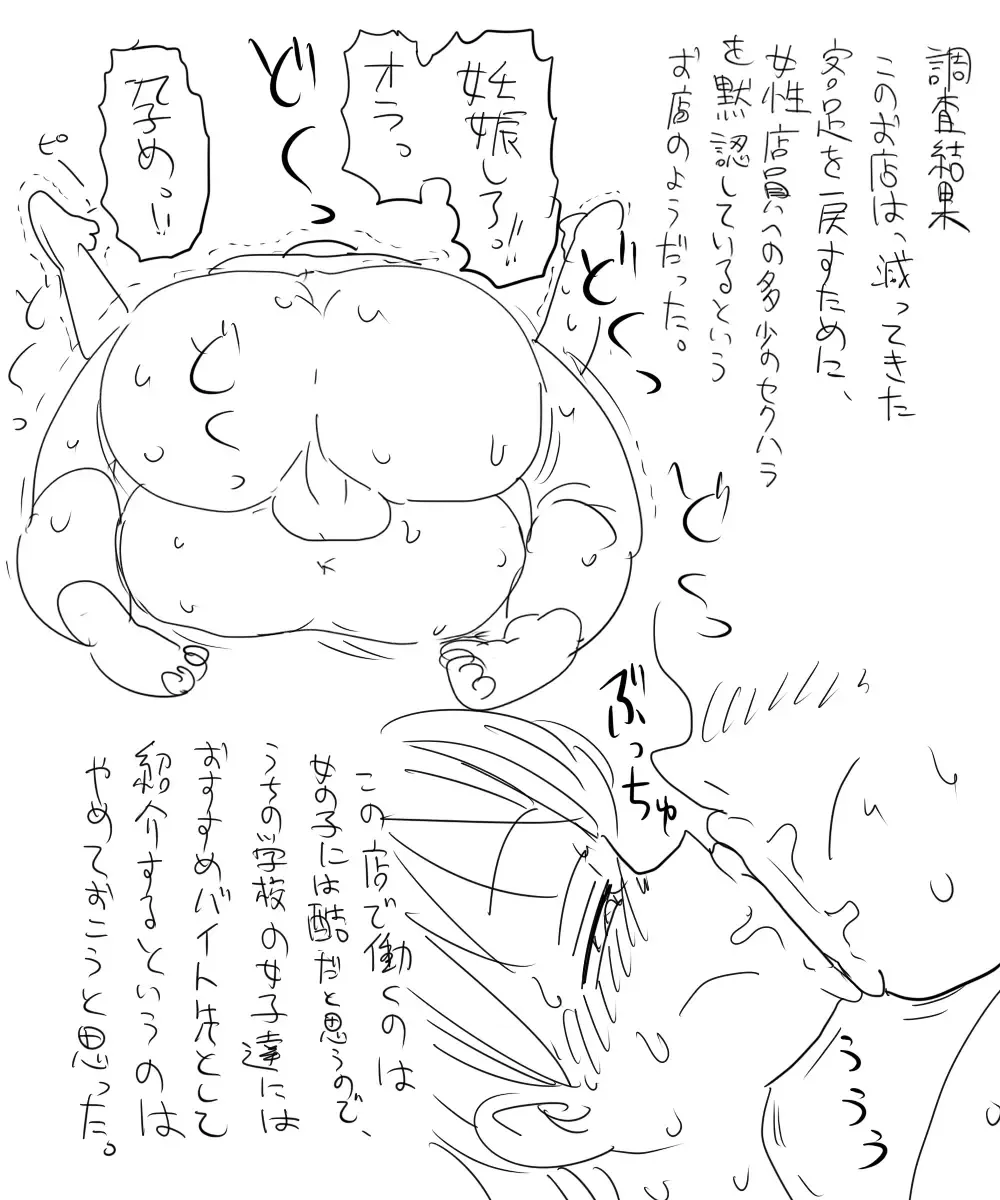 調査結果
このお店は、減ってきた
客足を戻すために、
女性店員への多少のセクハラ
を黙認しているという
お店のようだった。
妊娠しろっ!!
オラっ
孕めっ!!
ピーン
ど
ぶっちゅ
ううう
この店で働くのは
女の子には酷だと思うので、
うちの学校の女子達には
おすすめバイト先として
紹介するというのは
やめておこうと思った。